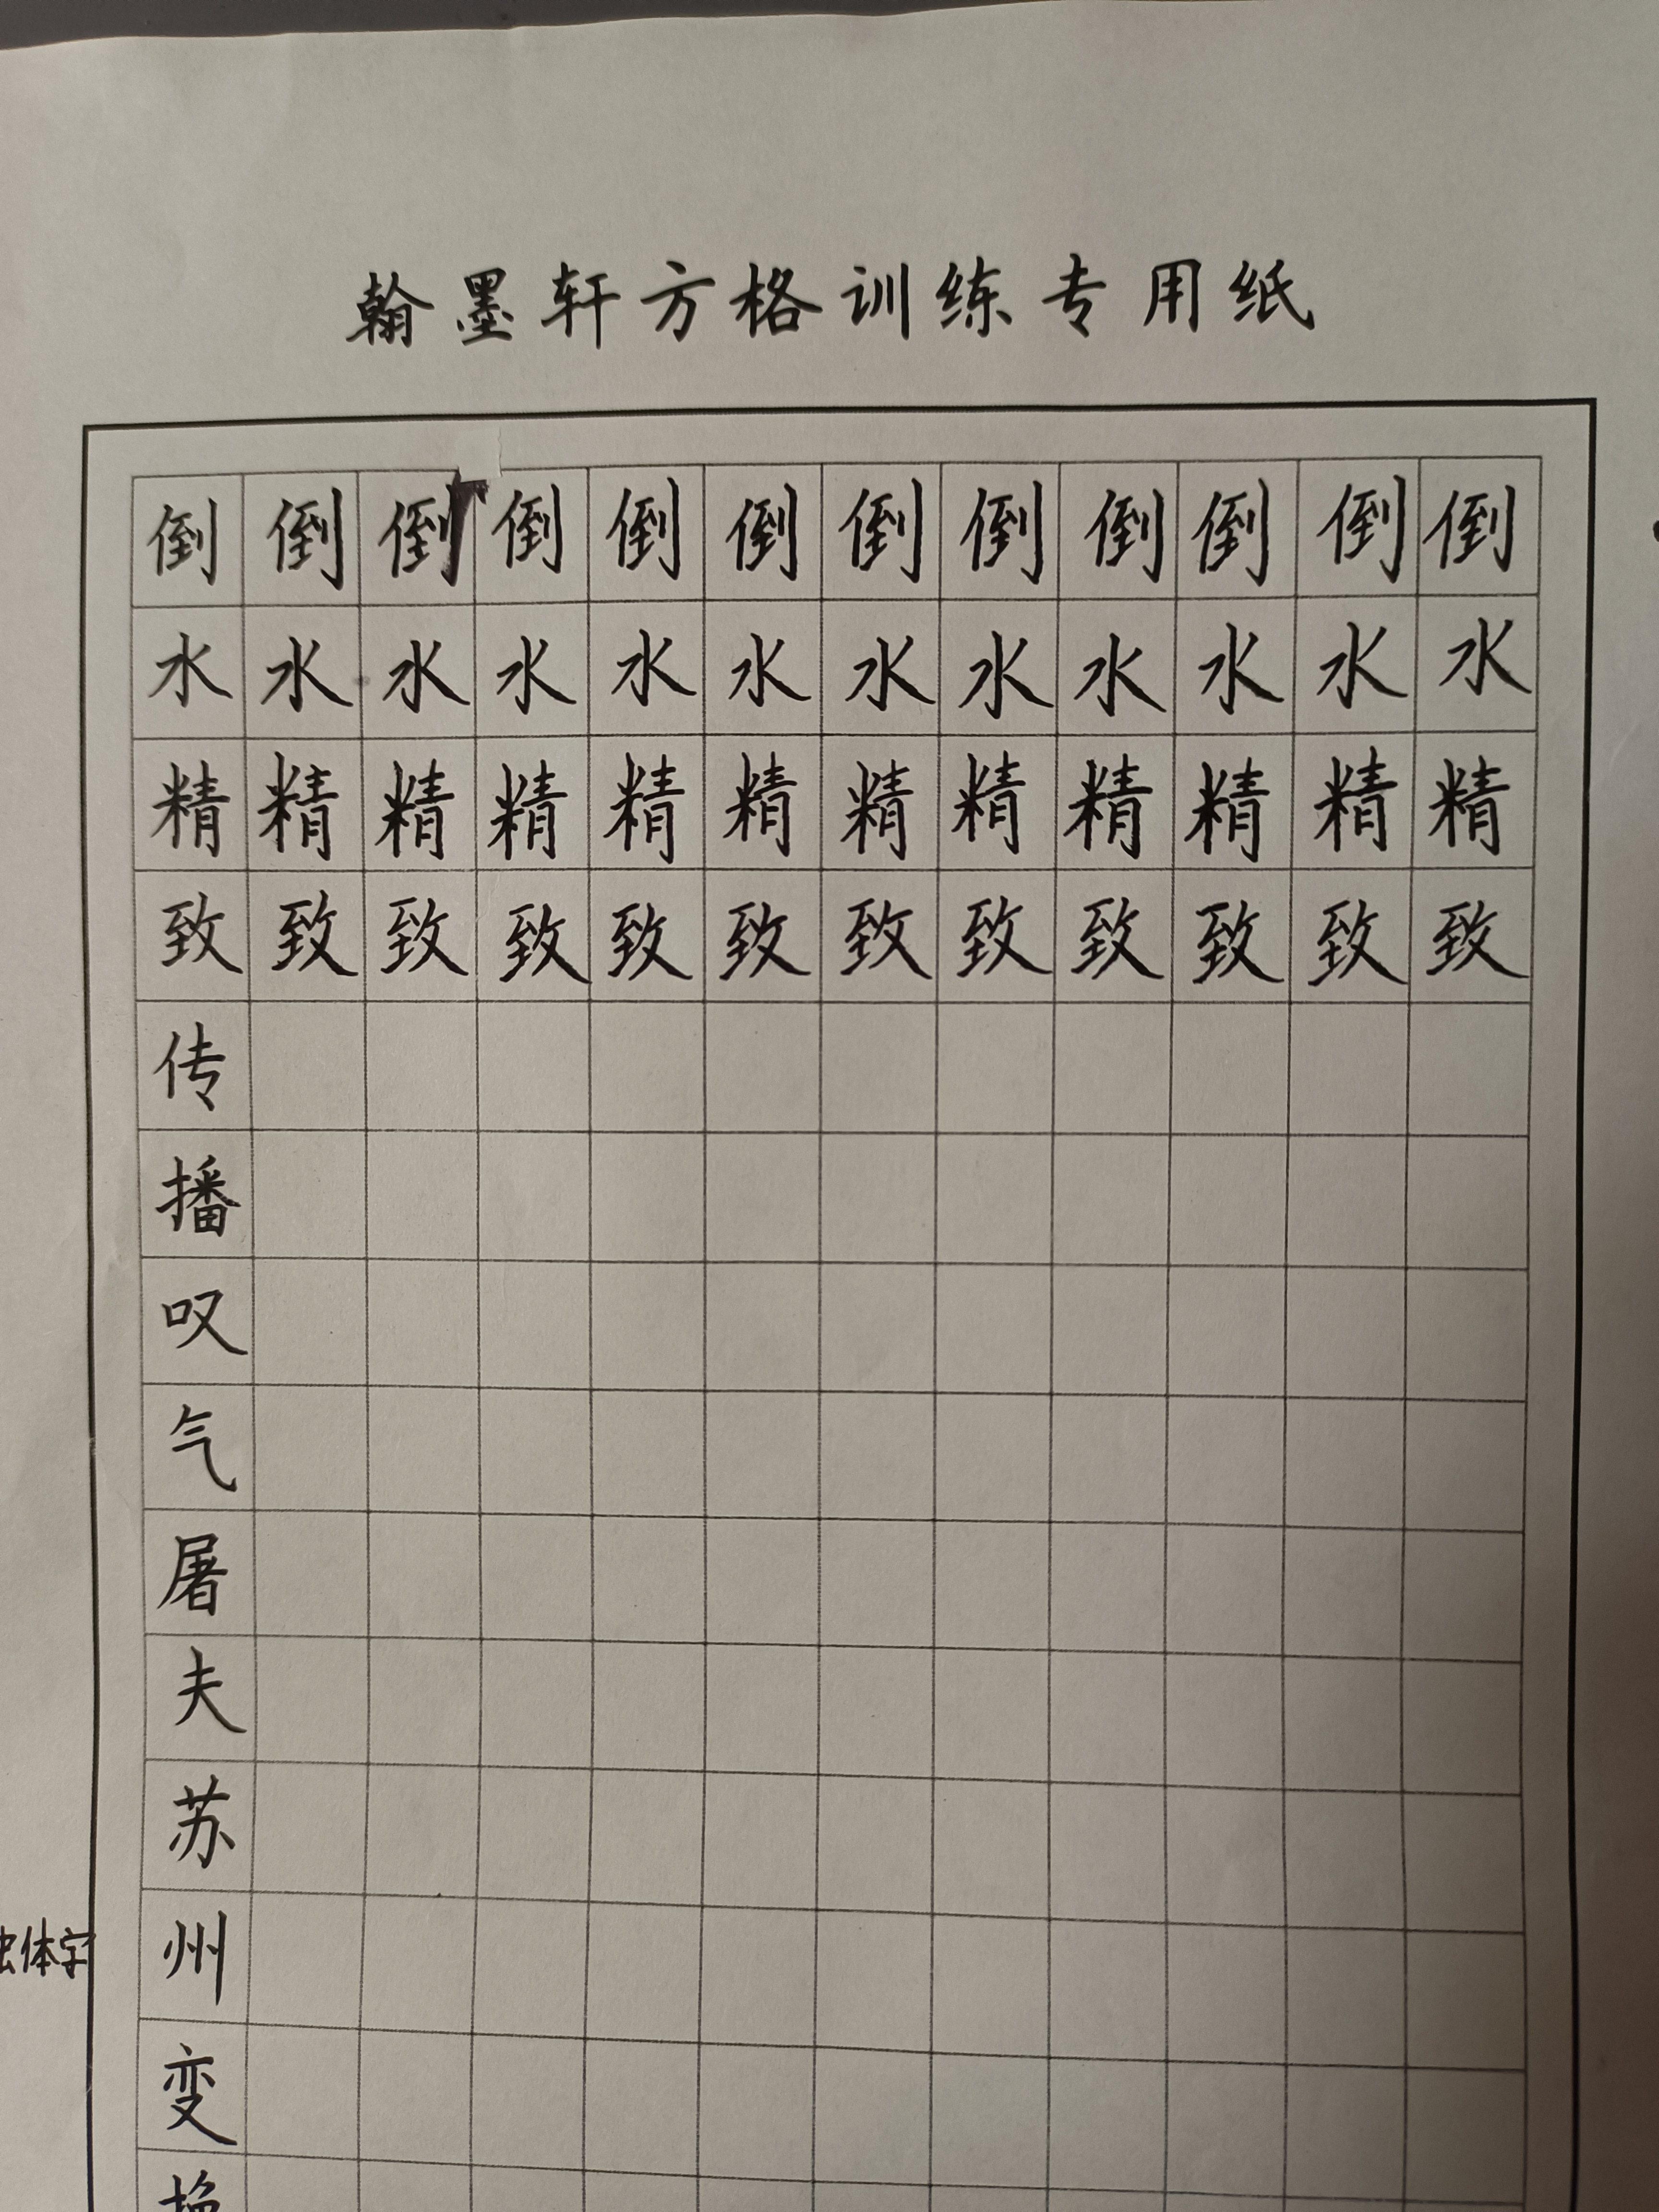 翰墨轩方格训练专用纸
倒倒倒倒倒倒倒倒倒倒倒倒
水水水水水水水水水水水水
精精精精精精精精精精精精
致致致致致致致致致致致致
传
播
叹
气
屠
夫
苏
州
体字
变